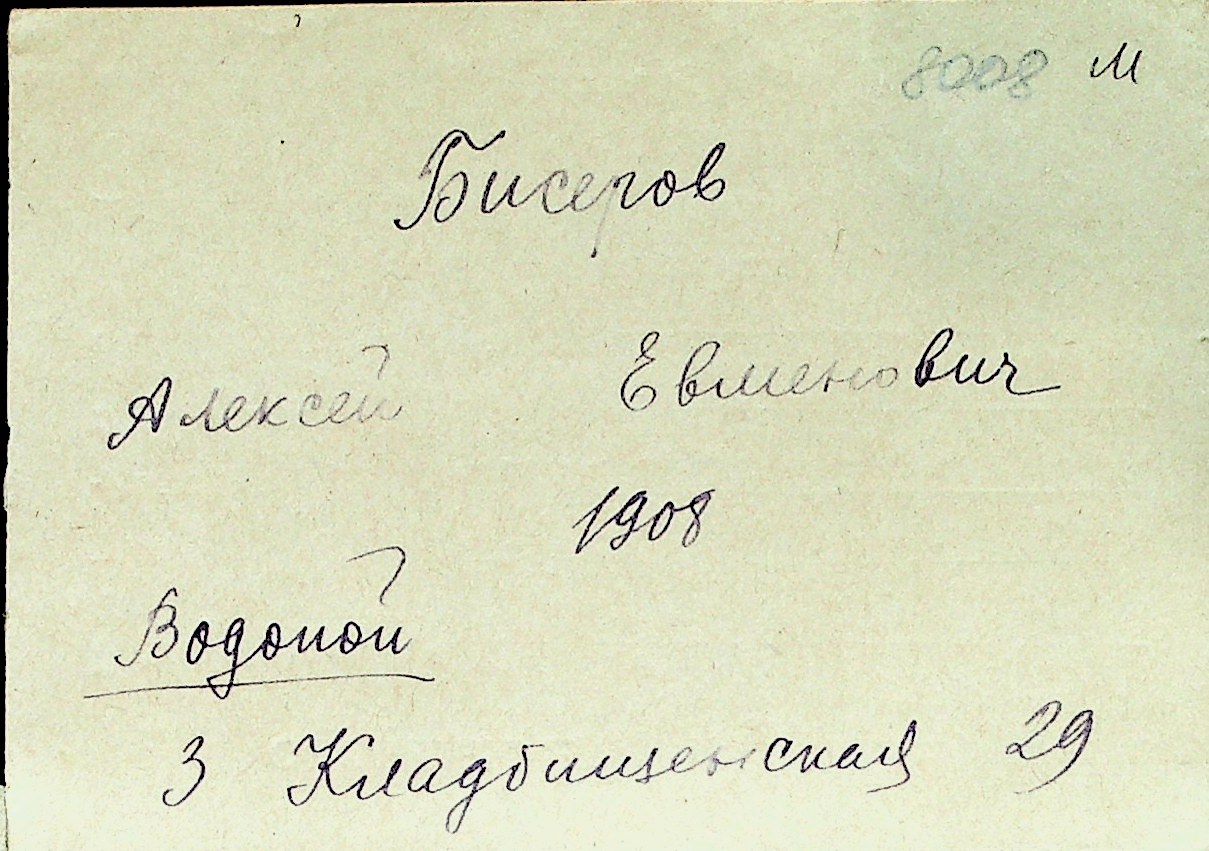 8008 м
Бисеров
Алексей Евменович
1908
Водопой
3 Кладбищенская 29